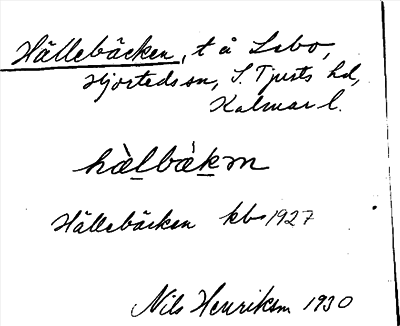 Hällebäcken, t å Lsbo,
Hjorteds sn, S. Tjusts hd,
Kalmar l.
hàlbákm
Hällebäcken kbs 1927
Nils Henrikson 1930